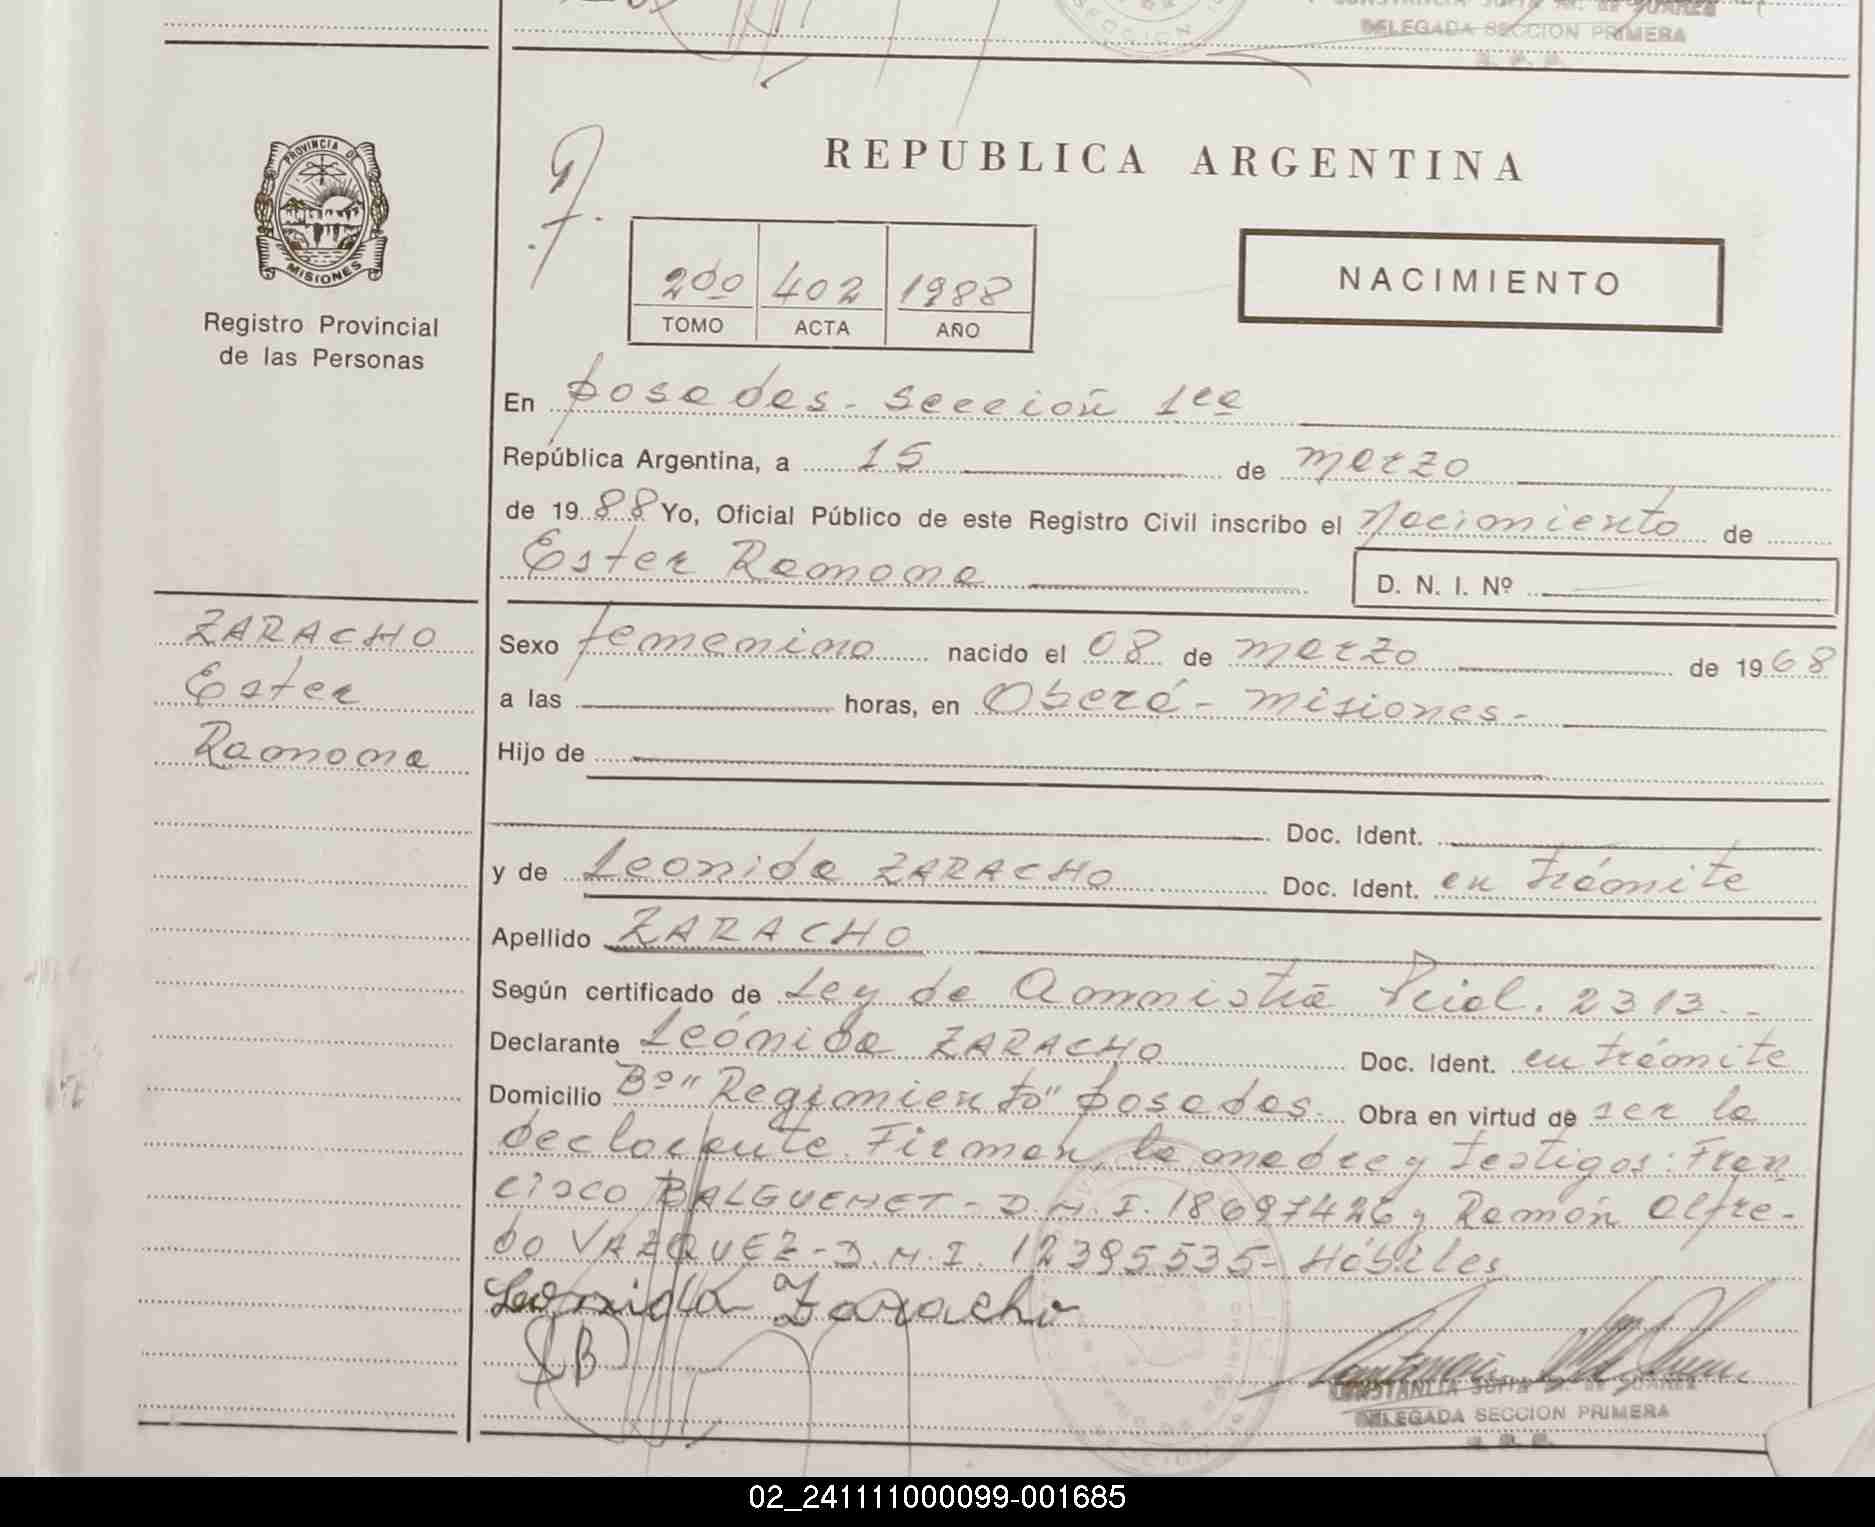 DELEGADA SECCION PRIMERA
PROVINCIA DE
MISIONES
Registro Provincial
de las Personas
REPUBLICA ARGENTINA
NACIMIENTO
2do 402 1988
TOMO ACTA AÑO
En Posadas - Sección 1ra
República Argentina, a 15 de marzo
de 1988 Yo, Oficial Público de este Registro Civil inscribo el Nacimiento de
Ester Ramona D. N. I. Nº
ZARACHO
Ester
Ramona
Sexo femenino nacido el 08 de marzo de 1968
a las horas, en Oberá - Misiones -
Hijo de
Doc. Ident.
y de Leonida ZARACHO Doc. Ident. en trámite
Apellido ZARACHO
Según certificado de Ley de Amnistía Pcial. 2313.-
Declarante Leónida ZARACHO Doc. Ident. en trámite
Domicilio Bº "Regimiento" Posadas. Obra en virtud de ser la
declarante. Firman, la madre y testigos: Fran-
cisco BALGUEHET - D.N.I. 18697426 y Ramón Alfre-
do VAZQUEZ - D.N.I. 12395535 - Hábiles
Leonida Zaracho
B
CONSTANCIA SOFIA M. DE SUAREZ
DELEGADA SECCION PRIMERA
R. P. P.
02_241111000099-001685